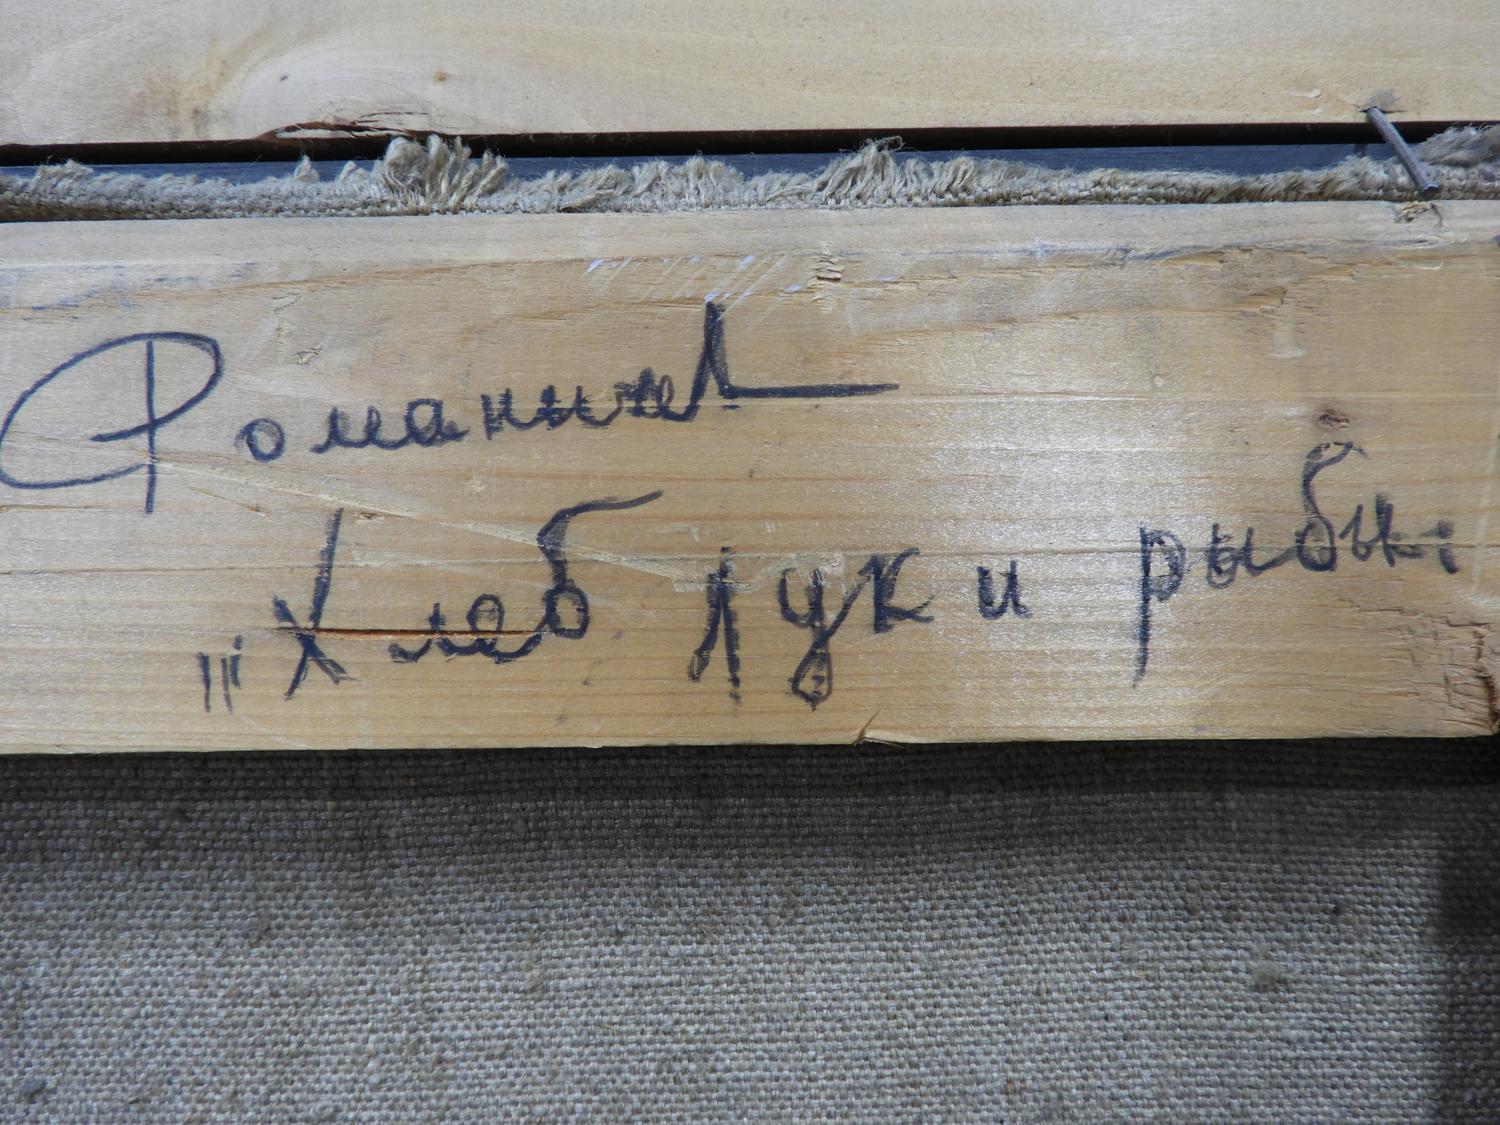 Романычев
„Хлеб лук и рыбы